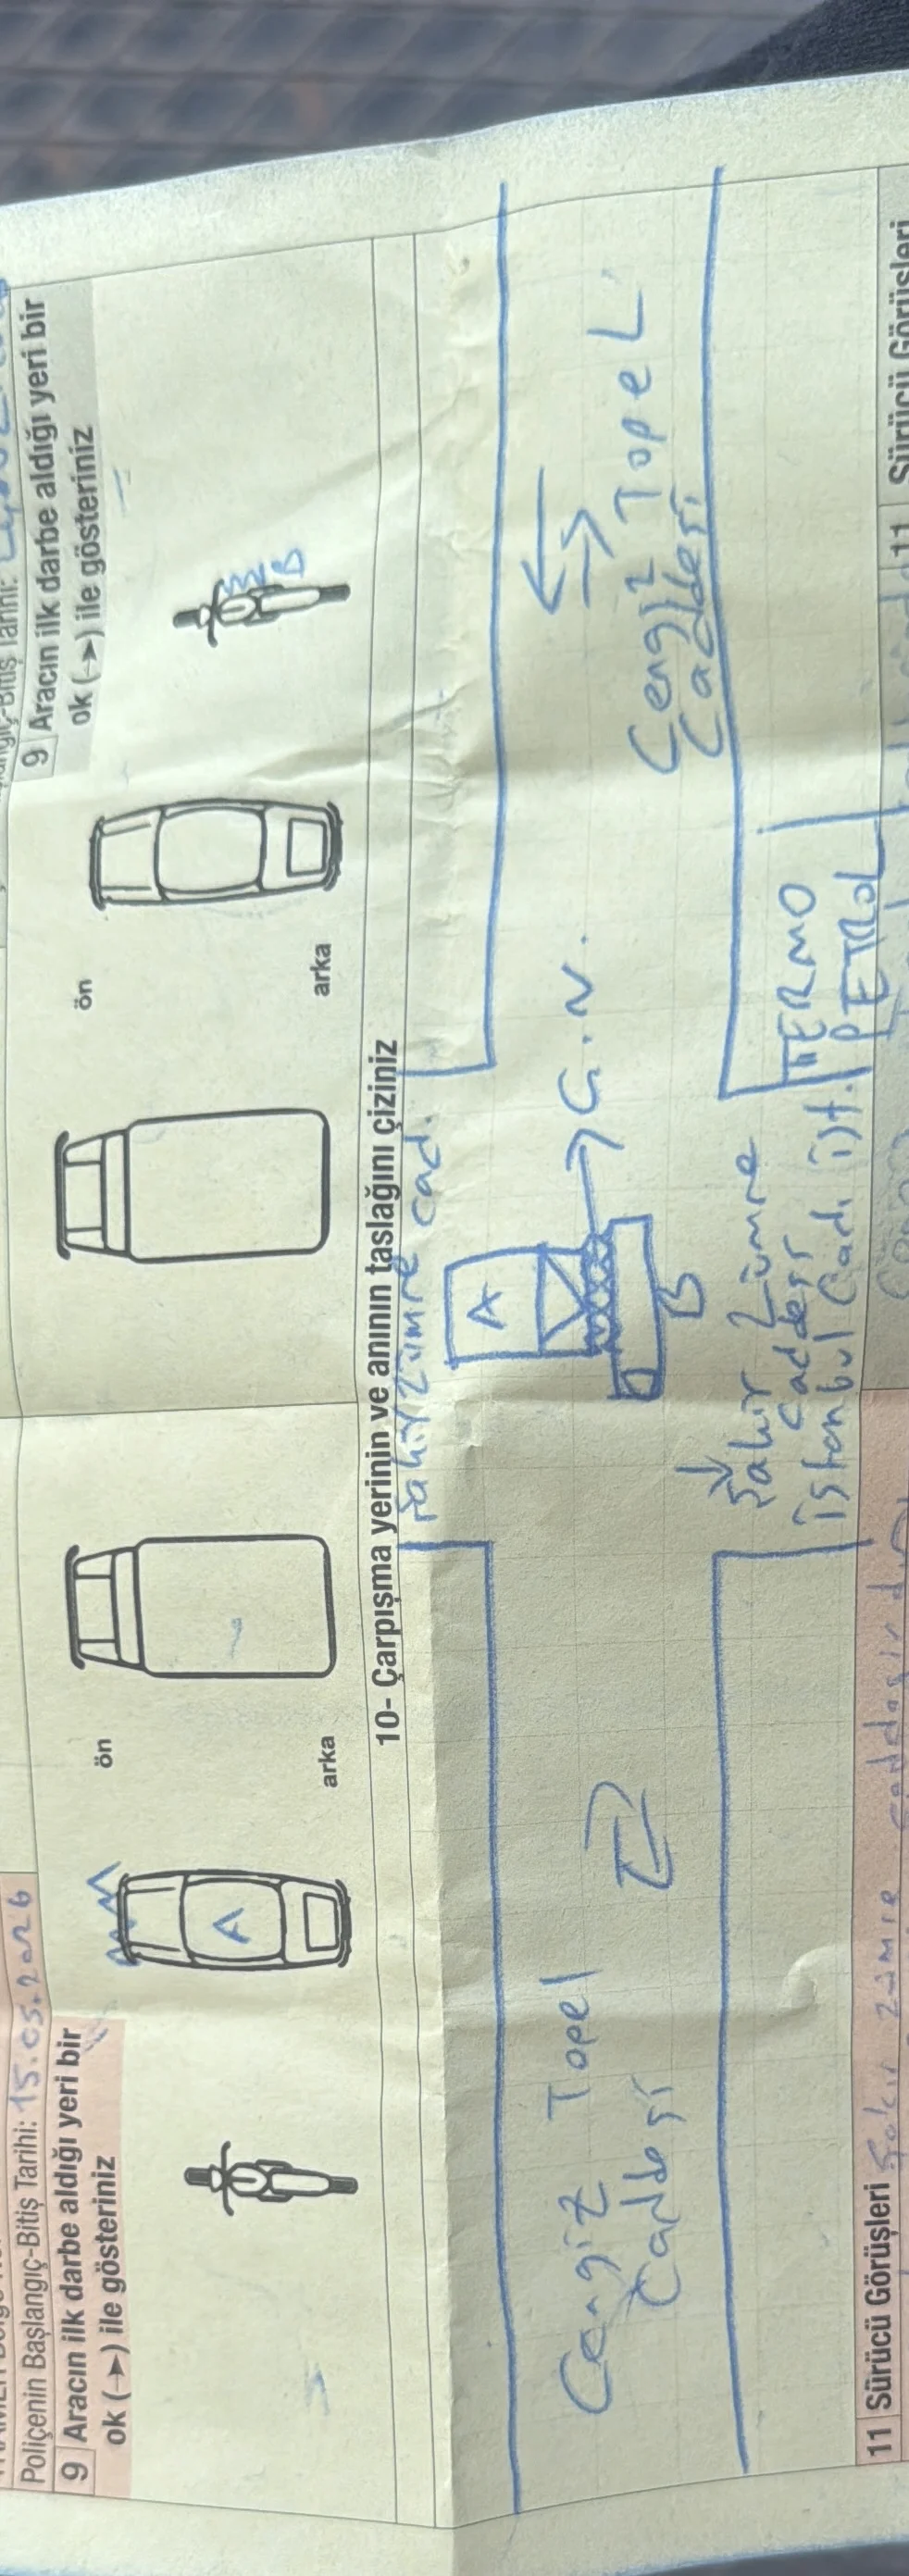 Poliçenin Başlangıç-Bitiş Tarihi: 15.05.2026
9 Aracın ilk darbe aldığı yeri bir
ok (→) ile gösteriniz
ön
arka
A
9 Aracın ilk darbe aldığı yeri bir
ok (→) ile gösteriniz
ön
arka
B
10- Çarpışma yerinin ve anının taslağını çiziniz
Şakir Zümre cad.
A
B
Ç.N.
Cengiz Topel
Caddesi
Cengiz Topel
Caddesi
Şakir Zümre
Caddesi
istanbul Cadi ist.
TERMO
PETROL
11 Sürücü Görüşleri Şakir zümre caddesinden
11 Sürücü Görüşleri